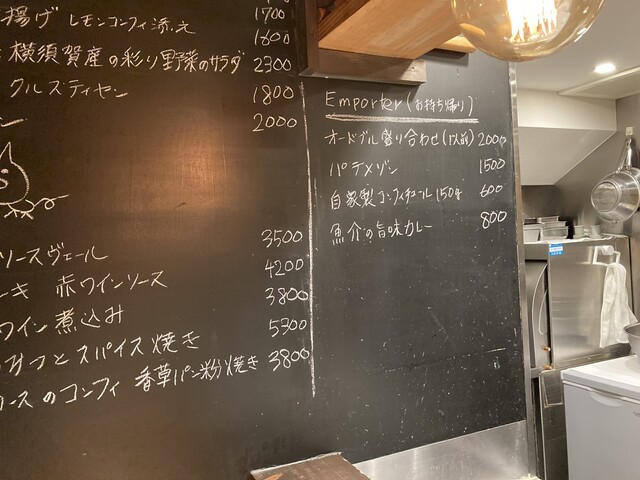 揚げ レモンコンフィ添え 1700
1600
横須賀産の彩り野菜のサラダ 2300
クルスティヤン 1800
ン 2000
ソースヴェール 3500
ーキ 赤ワインソース 4200
ワイン煮込み 3800
みつとスパイス焼き 5300
ースのコンフィ 香草パン粉焼き 3800
Emporter (お持ち帰り)
オードブル盛り合わせ (1人前) 2000
パテメゾン 1500
自家製コンフィチュール 150g 600
魚介の旨味カレー 800